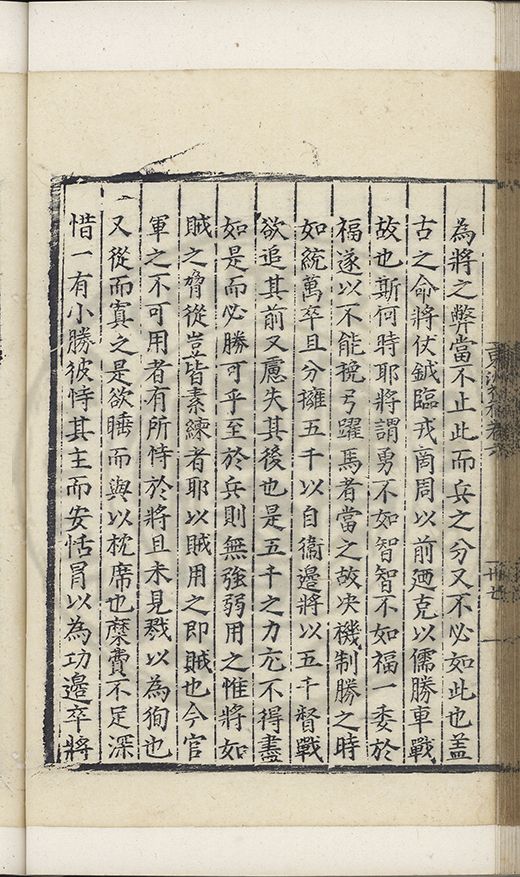 為將之弊當不止此而兵之分又不必如此也盖
古之命將仗鉞臨戎啇周以前廼克以儒勝車戰
故也斯何時耶將謂勇不如智智不如福一委於
福遂以不能挽弓躍馬者當之故决機制勝之時
如統萬卒且分擁五千以自衞邊將以五千督戰
欲追其前又慮失其後也是五千之力亢不得盡
如是而必勝可乎至於兵則無強弱用之惟將如
賊之脅從豈皆素練者耶以賊用之即賊也今官
軍之不可用者有所恃於將且未見戮以為徇也
又從而寘之是欲睡而與以枕席也糜費不足深
惜一有小勝彼恃其主而安恬冒以為功邊卒將